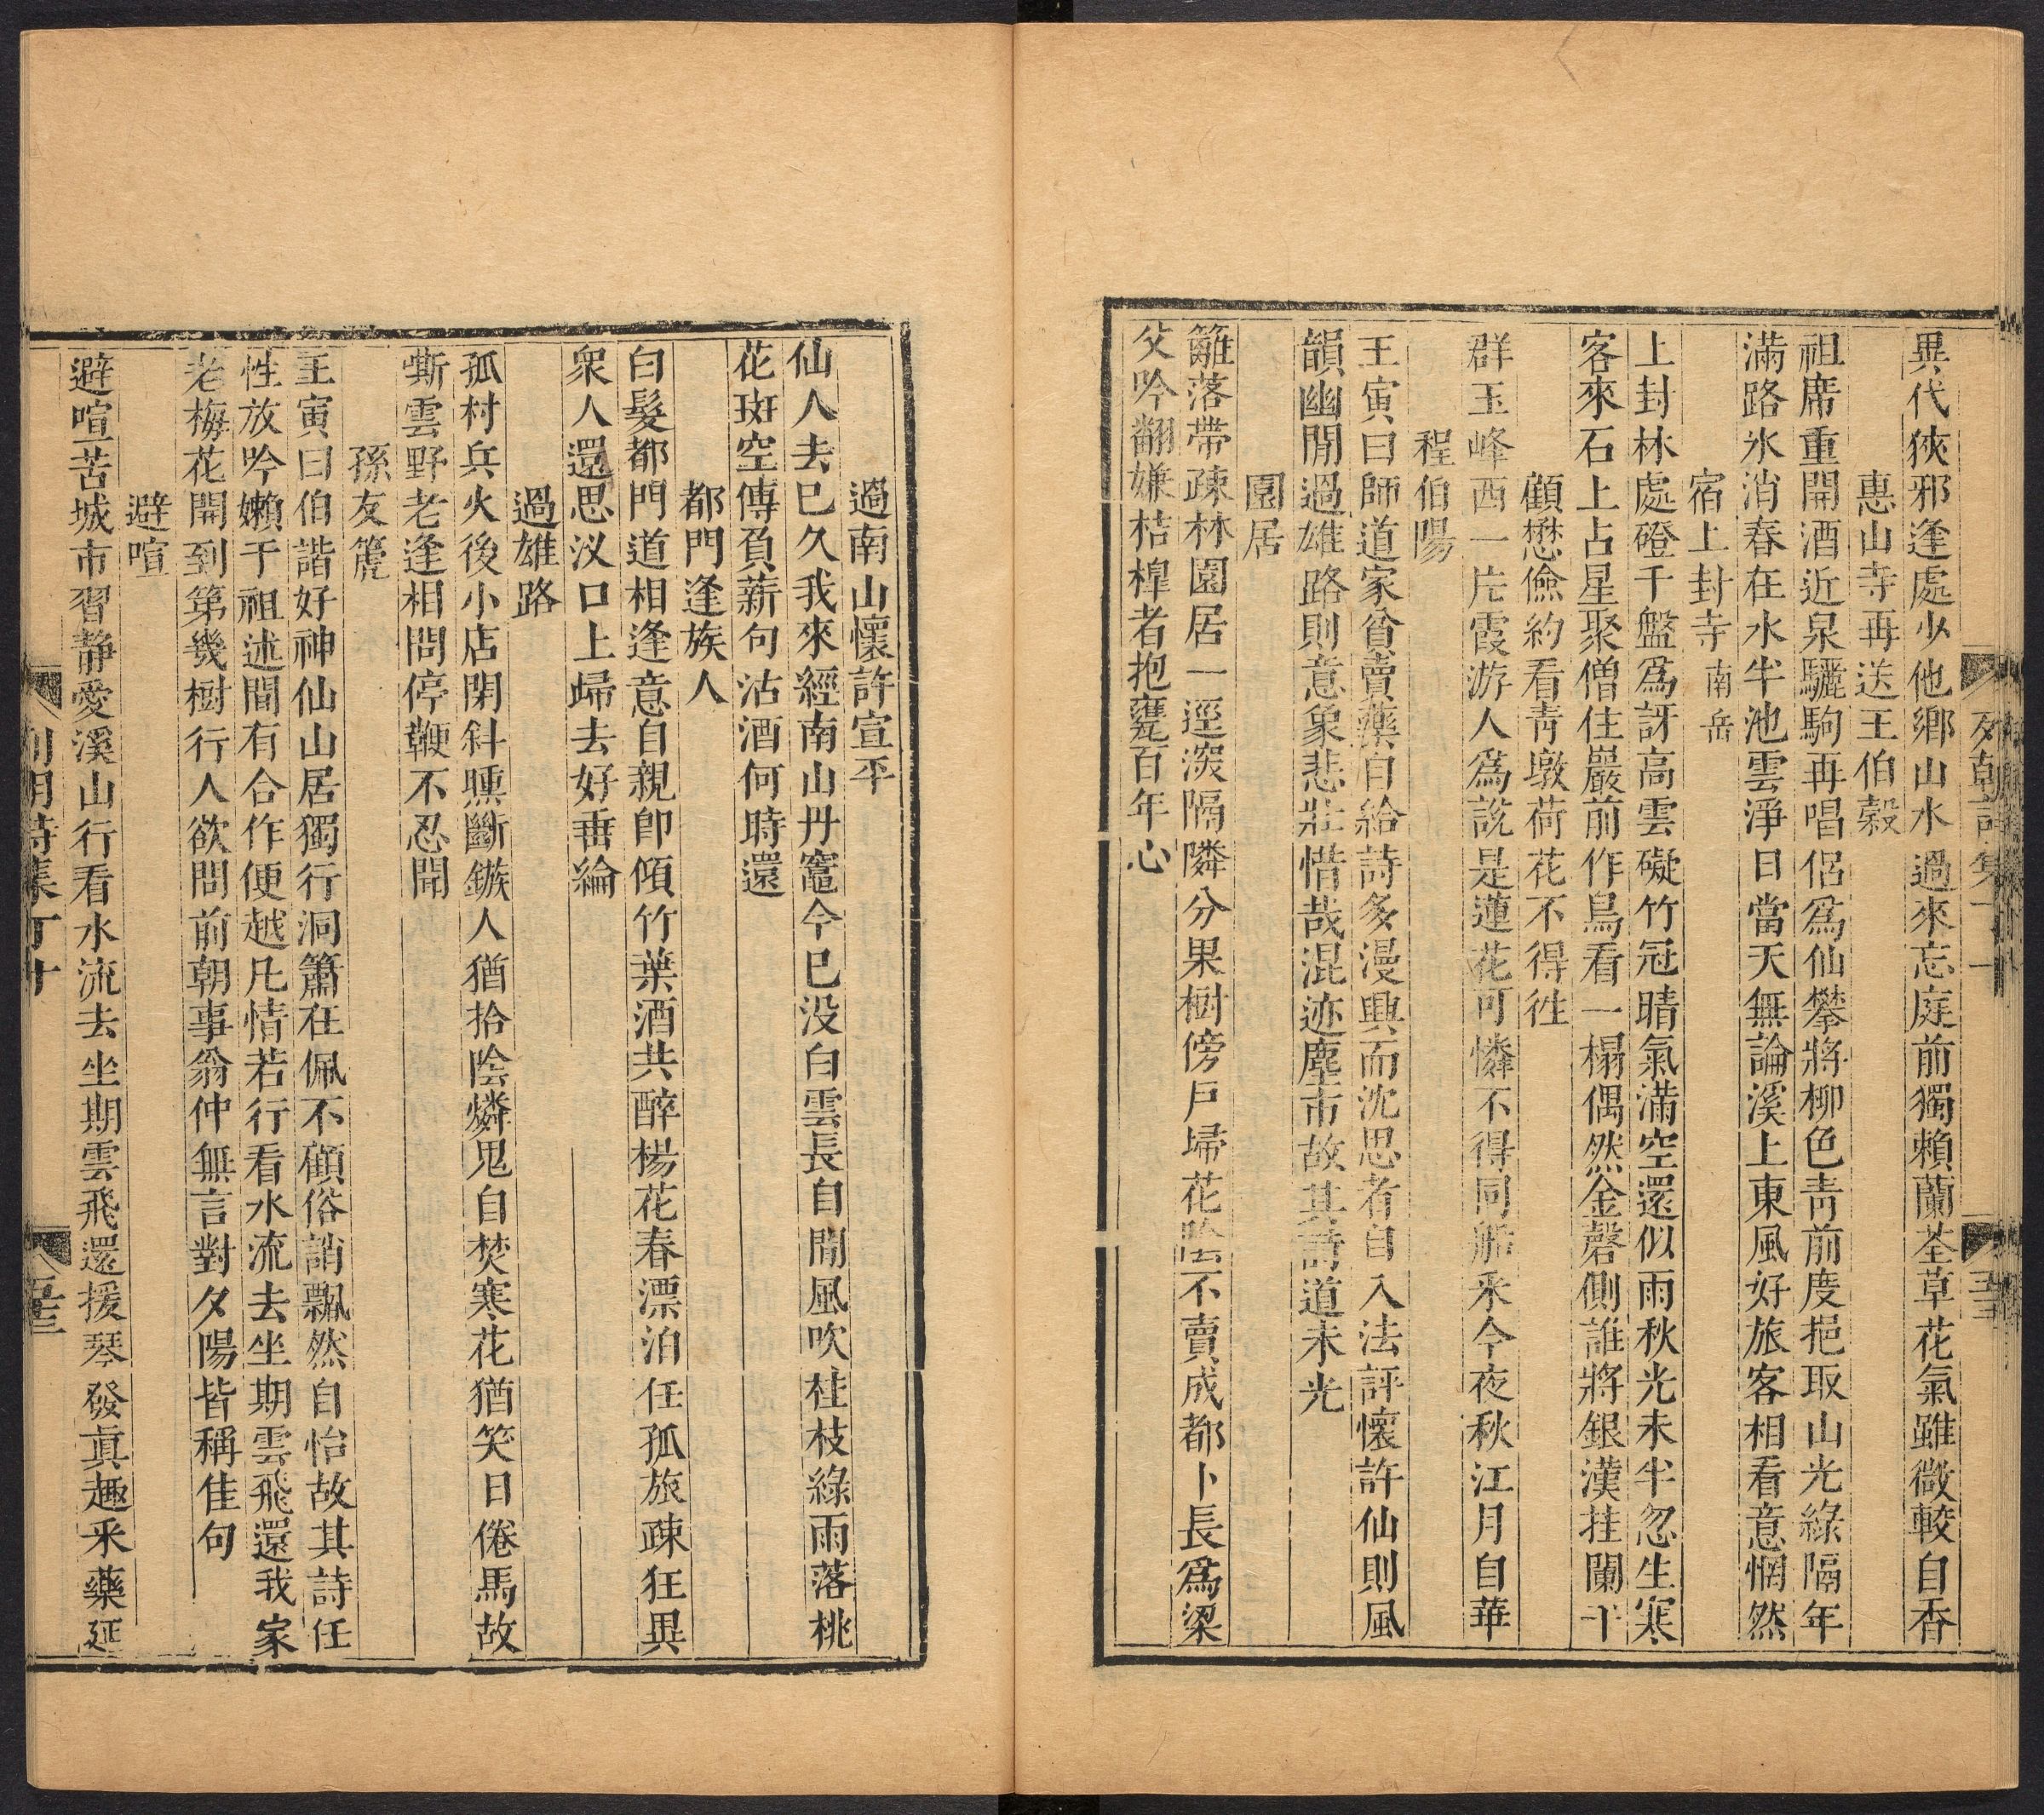 異代狹邪逢處少他鄉山水過來忘庭前獨賴蘭荃草花氣雖微較自香
惠山寺再送王伯穀
祖席重開酒近泉驪駒再唱侶爲仙攀將柳色靑前度挹取山光綠隔年
滿路氷消春在水半池雲淨日當天無論溪上東風好旅客相看意惘然
宿上封寺南岳
上封林處磴千盤爲訝高雲礙竹冠晴氣滿空還似雨秋光未半忽生寒
客來石上占星聚僧住巖前作鳥看一榻偶然金磬側誰將銀漢挂闌干
顧懋儉約看靑墩荷花不得徃
群玉峰西一片霞游人爲說是蓮花可憐不得同舟采今夜秋江月自華
程伯陽
王寅曰師道家貧賣藥自給詩多漫興而沈思者自入法評懷許仙則風
韻幽閒過雄路則意象悲壯惜哉混迹塵市故其詩道未光
園居
籬落帶疎林園居一逕深隔隣分果樹傍戸埽花陰不賣成都卜長爲梁
父吟翻嫌桔槹者抱甕百年心
過南山懷許宣平
仙人去已久我來經南山丹竈今已没白雲長自閒風吹桂枝綠雨落桃
花斑空傳負薪句沽酒何時還
都門逢族人
白髮都門道相逢意自親卽傾竹葉酒共醉楊花春漂泊任孤旅疎狂異
衆人還思汊口上歸去好垂綸
過雄路
孤村兵火後小店閉斜曛斷鏃人猶拾陰燐鬼自焚寒花猶笑日倦馬故
嘶雲野老逢相問停鞭不忍聞
孫友篪
王寅曰伯諧好神仙山居獨行洞簫在佩不顧俗誚飄然自怡故其詩任
性放吟嬾于祖述間有合作便越凡情若行看水流去坐期雲飛還我家
老梅花開到第幾樹行人欲問前朝事翁仲無言對夕陽皆稱佳句
避喧
避喧苦城市習靜愛溪山行看水流去坐期雲飛還援琴發眞趣采藥延
列朝詩集丁十
五三